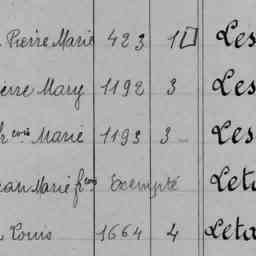 Pierre Marie 423 1 Les
ierre Mary 1192 3 Les
Marie 1193 3 Les
ean Marie fçois Exempté Leta
Louis 1664 4 Leta